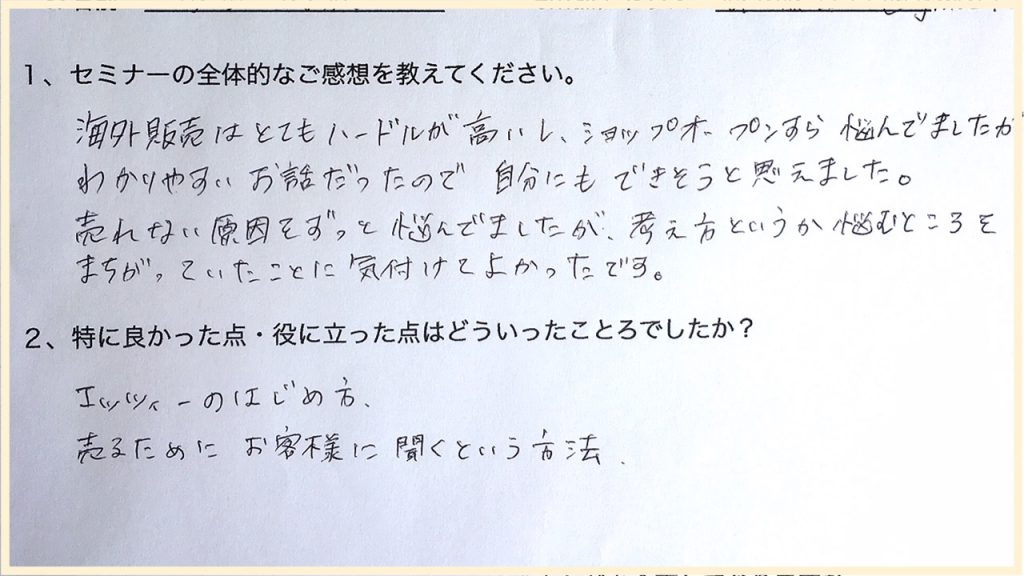 1、セミナーの全体的なご感想を教えてください。
海外販売はとてもハードルが高いし、ショップオープンすら悩んでましたが
わかりやすいお話だったので 自分にもできそうと思えました。
売れない原因をずっと悩んでましたが、考え方というか悩むところを
まちがっていたことに気付けてよかったです。
2、特に良かった点・役に立った点はどういったことろでしたか？
エッツィーのはじめ方、
売るためにお客様に聞くという方法、